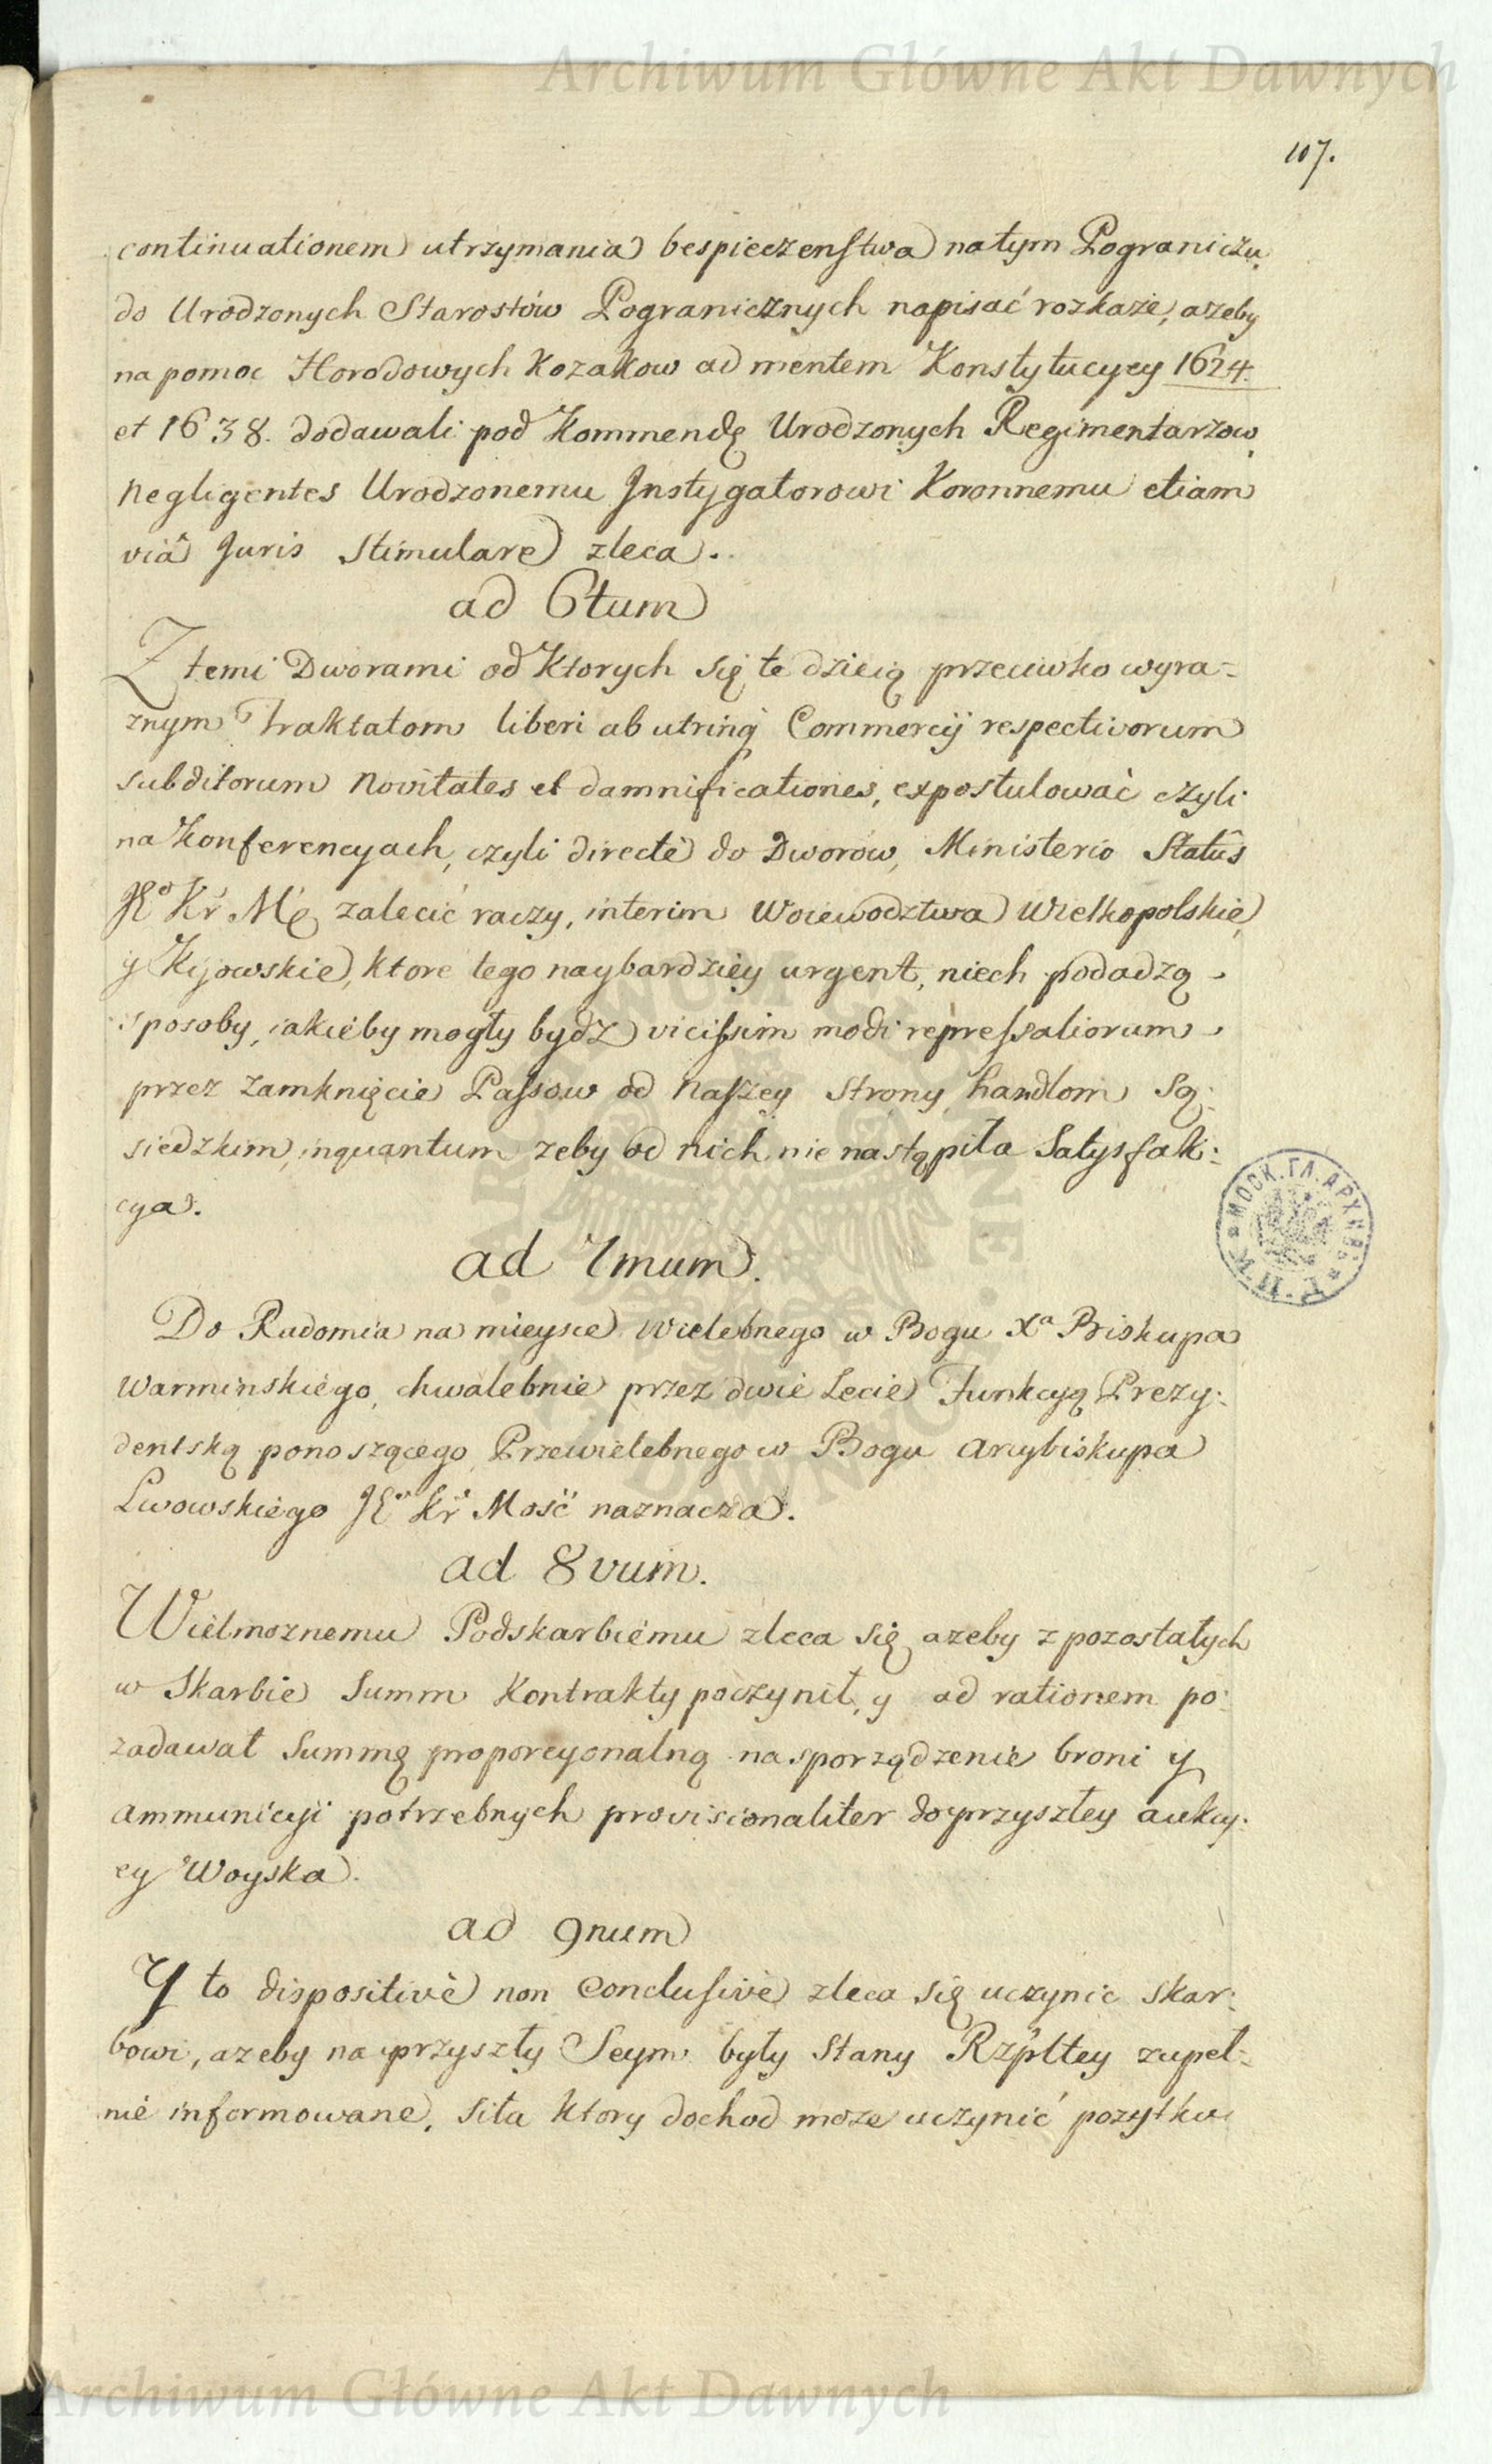 Archiwum Główne Akt Dawnych
107.
continuationem utrzymania bespieczenstwa na tym Pograniczu
do Urodzonych Starostów Pogranicznych napisać rozkaże, azeby
na pomoc Horodowych Kozakow ad mentem Konstytucyey 1624.
et 1638. dodawali pod Kommendę Urodzonych Regimentarzow
negligentes Urodzonemu Instygatorowi Koronnemu etiam
viâ Juris Stimulare zleca.
ad 6tum
Z temi Dworami od Ktorych się te dzieią przeciwko wyra-
znym Traktatom liberi ab utrinq Commercij respectivorum
subditorum novitates et damnificationes, expostulować czyli
na Konferencyach, czyli directè do Dworow, Ministerio Statûs
JEo Kr Mę zalecić raczy, interim Woiewodztwa Wielkopolskie
y Kijowskie, ktore tego naybardziey urgent, niech podadzą
sposoby, iakieby mogły bydz vicissim modi repressaliorum,
przez zamknięcie Passow od naszey Strony handlom Są:
siedzkim, inquantum zeby od nich nie nastąpiła Satysfak:
cya.
ad 7mum.
Do Radomia na mieysce Wielebnego w Bogu Xa Biskupa
Warminskiego, chwalebnie przez dwie Lecie Funkcyą Prezy:
dentską ponoszącego Przewielebnego w Bogu Arcybiskupa
Lwowskiego JEo Kr Mość naznacza.
ad 8vum.
Wielmoznemu Podskarbiemu zleca się azeby z pozostałych
w Skarbie Summ Kontrakty poczynił, y ad rationem po:
zadawał Summę proporcyonalną na sporządzenie broni y
ammunicyi potrzebnych provisionaliter do przyszłey aukcy:
ey Woyska.
ad 9num
Y to dispositivè non conclusivè zleca się uczynic skar:
bowi, azeby na przyszły Seym były Stany Rzpltey zupeł:
nie informowane, siła ktory dochod moze uczynić pozytku
МОСК. ГЛ. АРХИВЪ
Archiwum Główne Akt Dawnych